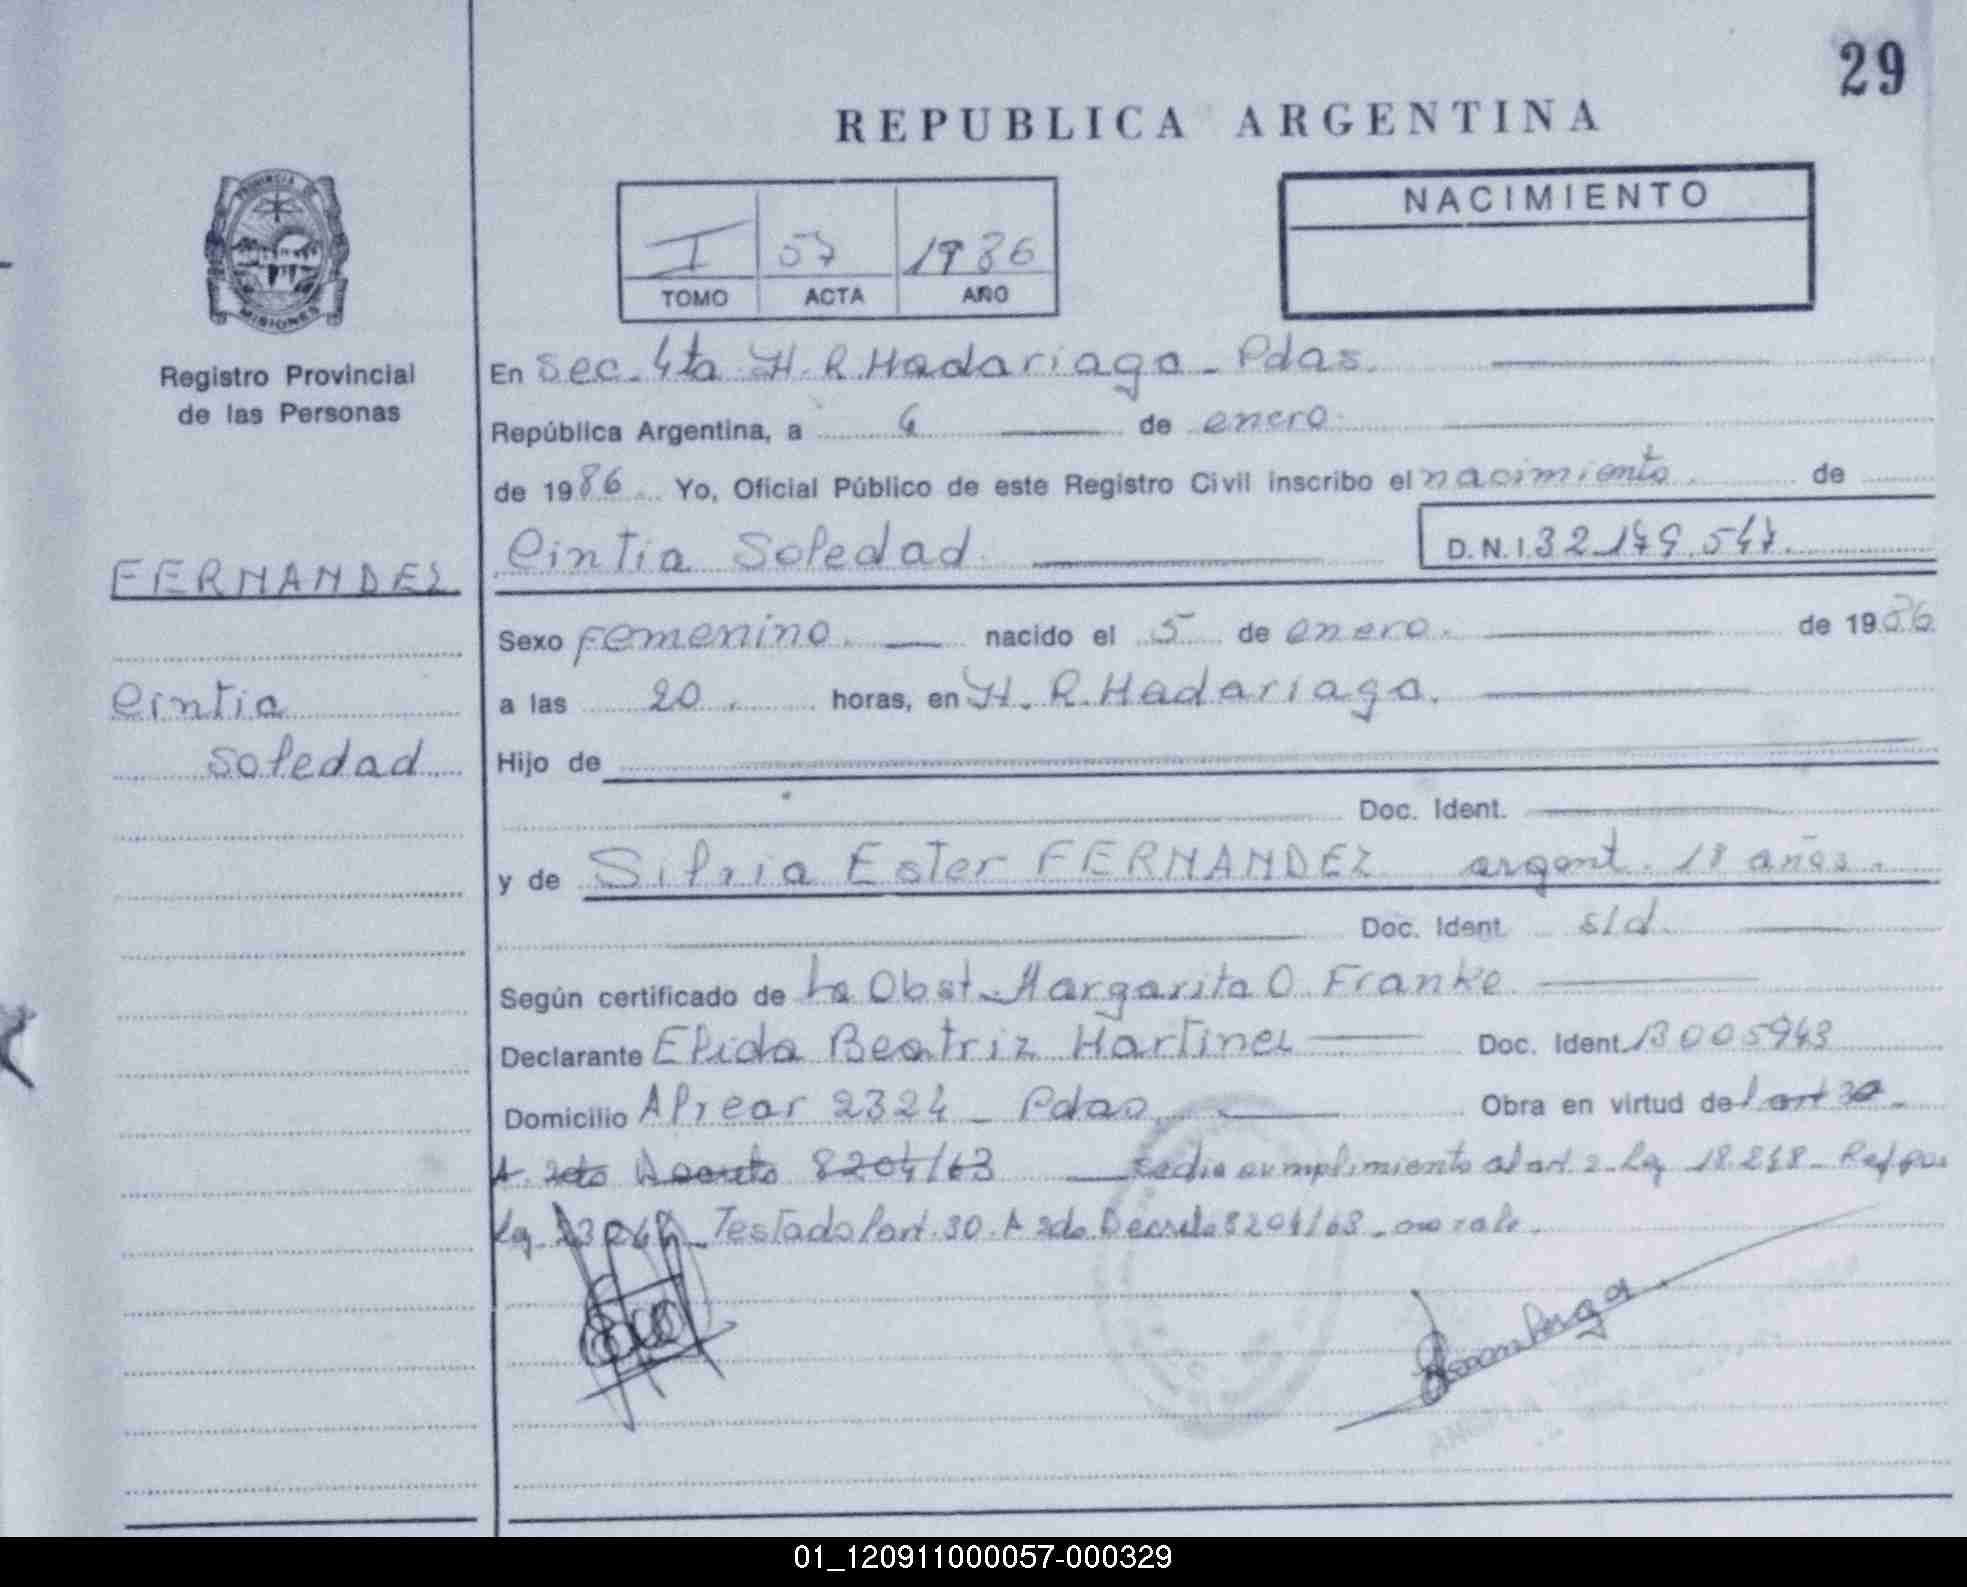 29
REPUBLICA ARGENTINA
PROVINCIA DE
MISIONES
Registro Provincial
de las Personas
I 57 1986
TOMO ACTA AÑO
NACIMIENTO
En Sec. 4ta H. R. Madariaga - Pdas.
República Argentina, a 6 de enero
de 1986 Yo, Oficial Público de este Registro Civil inscribo el nacimiento de
FERNANDEZ
Cintia Soledad
Cintia Soledad D.N.I. 32.179.547.
Sexo Femenino. nacido el 5 de enero. de 1986
a las 20. horas, en H. R. Madariaga.
Hijo de
Doc. Ident.
y de Silvia Ester FERNANDEZ argent. 18 años.
Doc. Ident. s/d.
Según certificado de la Obst. Margarita O. Franke
Declarante Elida Beatriz Martinez Doc. Ident. 13005943
Domicilio Alvear 2324 - Pdas. Obra en virtud del art 30
A. 2do Decreto 8204/63 se dio cumplimiento al art. 2 - Ley 18.248 - Ref por
Ley Testado l art. 30. A 2do. Decreto 8204/63 - no vale.
01_120911000057-000329